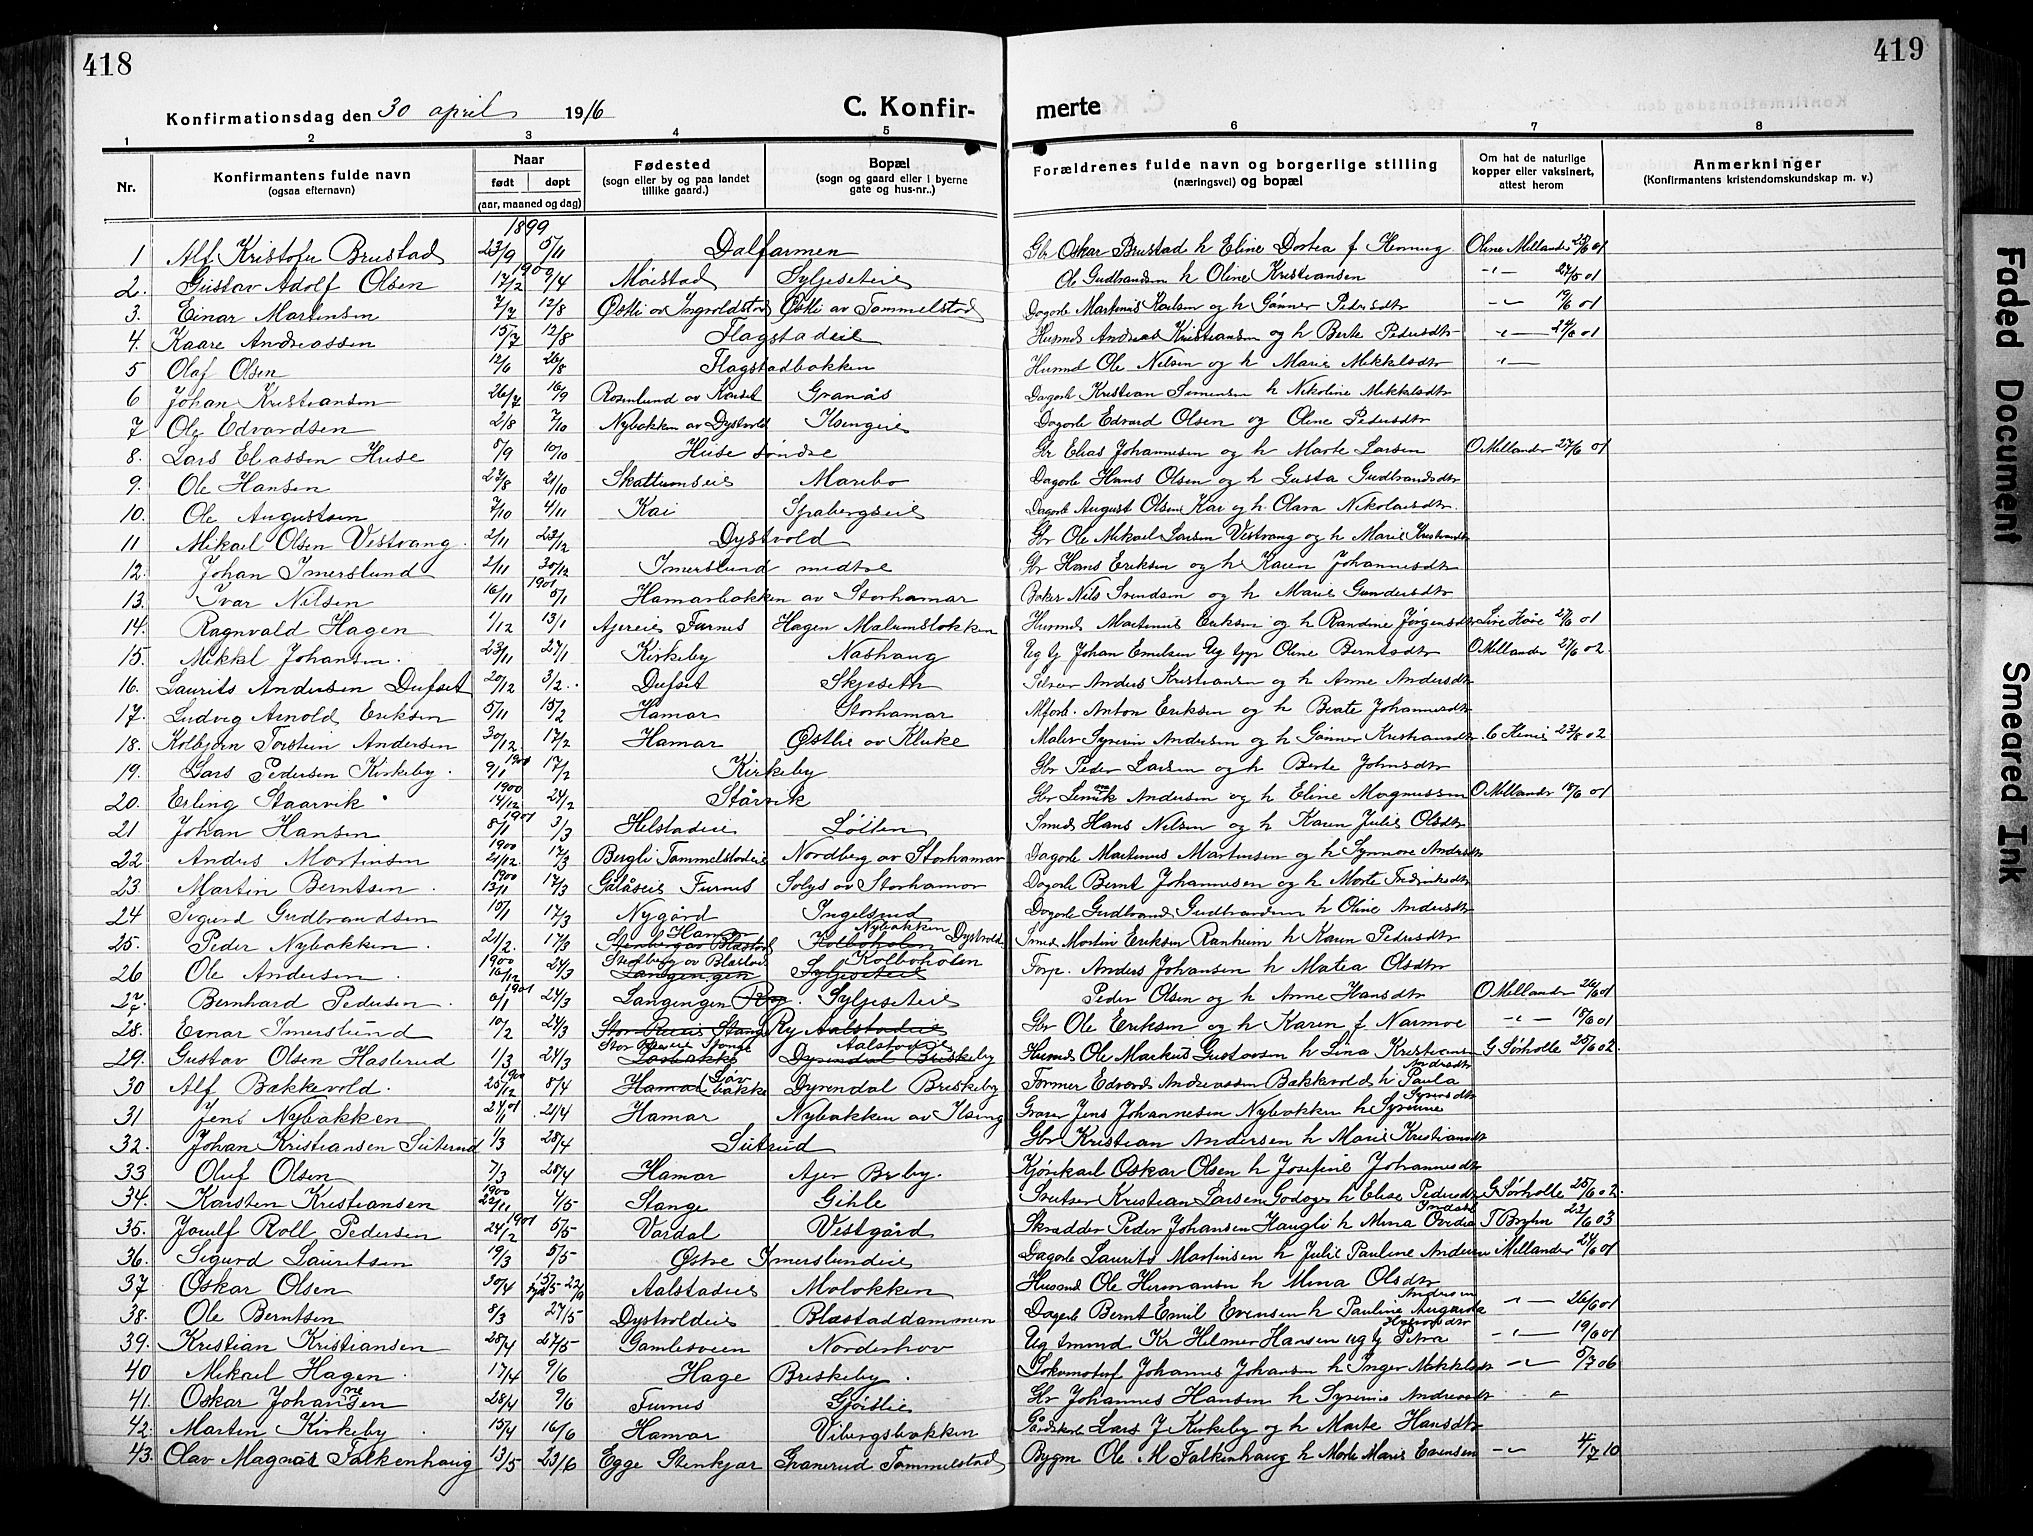 418
419
Konfirmationsdag den 30 april 1916
C. Konfir-
merte
1 2 3 4 5 6 7 8
Nr.
Konfirmantens fulde navn
(ogsaa efternavn)
Naar
født døpt
(aar, maaned og dag)
Fødested
(sogn eller by og paa landet
tillike gaard.)
Bopæl
(sogn og gaard eller i byerne
gate og hus-nr..)
Forældrenes fulde navn og borgerlige stilling
(næringsvei) og bopæl
Om hat de naturlige
kopper eller vaksinert,
attest herom
Anmerkninger
(Konfirmantens kristendomskundskap m. v.)
1899
1 Alf Kristofer Brustad 23/9 5/11 Dalfarmen Gbr Oskar Brustad h Eline Dortea f Hennig Oline Millander
1900
2. Gustav Adolf Olsen 17/2 9/4 Møistad Syljeseteie Ole Gudbrandsen h Oline Kristiansen 27/5 01
3. Einar Martinsen 7/7 12/8 Østli av Tommelstad Dagarb Martinus Karlsen og h Gunner Pedersdtr
4. Kaare Andreassen 15/7 12/8 Flagstadeie Husmd Andreas Kristiansen og h Berte Pedersdtr
5 Olaf Olsen 12/6 26/8 Flagstadbakken Husmd Ole Nilsen og h Marie Mikkelsdtr
6 Johan Kristiansen 26/7 16/9 Granås Dagarb Kristian Simensen h Nikoline Mikkelsdtr
7 Ole Edvardsen 2/8 7/10 Nybakken av Dystvold Ilsengeie Dagarb Edvard Olsen og Oline Pedersdtr
8. Lars Eliassen Huse 5/9 10/10 Huse søndre Gbr Elias Johannesen og h Marte Larsen O Millander 27/6 01
9. Ole Hansen 22/8 21/10 Skattumseie Marebo Dagarb Hans Olsen og h Gusta Gudbrandsdtr
10. Ole Augustsen 7/10 4/11 Kai Spabergseie Dagarb August Olsen Kai og h. Olava Nikolaisdtr.
11 Mikael Olsen Vestvang. 2/11 23/12 Dystvold Gbr Ole Mikael Larsen Vestvang og h Marie
12. Johan Imerslund 2/11 30/12 Imerslund midtre Gbr Hans Eriksen og h Karen Johannesdtr
1901
13. Ivar Nilsen 16/11 5/1 Hamarbakken av Storhamar Baker Nils Svendsen og h Marie Gundersdtr
14. Ragnvald Hagen 1/12 13/1 Ajereie Furnes Hagen Malumsløkken Husmd Martinus Eriksen og h Randine Jørgensdtr
15. Mikkl Johansen. 23/11 27/1 Kirkeby Nashaug Ug tj Johan Emilsen Ug tjpr Oline Berntsdtr O Millander 27/6 02.
16. Laurits Andersen Dufset 20/12 3/2 Dufset Skjeseth Anders Kristiansen og h Anne Andersdtr
17. Ludvig Arnold Eriksen 5/11 15/2 Hamar Storhamar Anton Eriksen og h Beate Johannesdtr
18. Kolbjørn Torstein Andersen 30/12 17/2 Hamar Østlie av Kluke Maler Syverin Andersen og h Gunner Kristiansdtr.
19. Lars Pedersen Kirkeby. 9/1 17/2 Kirkeby Gbr Peder Larsen og h Berte Johnsdtr
1900
20. Erling Staarvik 14/12 24/2 Stårvik Gbr Andersen og h Eline Magnussen O Millander 18/6 01
1901
21 Johan Hansen 8/1 3/3 Helstadeie Løiten Smed Hans Nilsen og h Karen Julie Olsdtr
1900
22 Anders Martinsen 21/12. 17/3 Bergli Tammelstadeie Nordberg av Storhamar Dagarb Martinus Martinsen og h Synnøve Andersdtr
1900
23. Martin Berntsen. 13/11 17/3 Gålåseie Furnes Solys av Storhamar Dagarb Bernt Johannesen og h Marte Fredriksdtr
24 Sigurd Gudbrandsen 10/1 17/3 Nygård Ingelsrud Dagarb Gudbrand Gudbrandsen h Oline Andersdtr
25. Peder Nybakken. 21/2. 17/3 Hamar Nybakken Dystvold Smed Martin Eriksen Ranheim h Karen Pedersdtr
1900
26 Ole Andersen. 16/12 24/3 Stenberg av Blæstad Kolboholen Forp. Anders Johansen h Matea Olsdtr
1901
27. Bernhard Pedersen. 6/1 24/3 Langengen Syljeseteie Peder Olsen og h Anne Hansdtr O Millander 26/6 01
28. Einar Imerslund 10/2 24/3 Ry Gbr Ole Eriksen og h Karen f Narmoe 18/6 01
29. Gustav Olsen Haslerud 1/3 24/3 Aalstadeie Husmd Ole Markus Gustavsen h Lina Kristiansen G Sørholte 25/6 02.
1900
30 Alf Bakkevold. 25/12 8/4 Dyrendal Briskeby Former Edvard Andreassen Bakkevold h Paula Andersdtr
31 Jens Nybakken 24/11 21/4 Hamar Nybakken av Ilseng Graver Jens Johannesen Nybakken h Syrinne
32. Johan Kristiansen Suterud 1/3 28/4 Suterud Gbr Kristian Andersen h Marie Kristiansdtr
33 Oluf Olsen 7/3 28/4 Hamar Ajer Breby. Kjørekarl Oskar Olsen h Josefine Johannesdtr
1900
34. Karsten Kristiansen 22/11 4/5 Stange Gihle Sveitser Kristian Larsen h Elise Pedersdtr G Sørholte 25/6 02.
1901
35. Roll Pedersen 24/2 5/5 Vardal Vestgård Skrædder Peder Johansen Haugli h Mina Ovidia T Bryhn 22/6 03
36. Sigurd Lauritsen 19/3 5/5 Østre Imerslundeie Dagarb Laurits Martinsen h Julie Pauline Andersen Millander 24/6 01
37 Oskar Olsen 30/4 Aalstadeie Moløkken Husmd Ole Hermansen h Mina Olsdtr
38. Ole Berntsen 8/3 27/5 Dystvoldeie Blæstaddammen Dagarb Bernt Emil Evensen h Pauline 26/6 01
39. Kristian Kristiansen 28/4 27/5 Gamleveien Norderhov Ug smmd Kr Helmer Hansen ug tj Petra 19/6 01
40 Mikael Hagen. 17/4 9/6 Hage Briskeby. Lokomotivf Johannes Johansen h Inger Mikkelsdtr 5/7 06
41. Oskar Johannesen 28/4 9/6 Furnes Gjøistie Gbr Johannes Hansen h Syverine Andreasdtr
42. Martin Kirkeby. 15/4 16/6 Hamar Vibergsbakken Lars J Kirkeby og h Marte Hansdtr
43. Olav Magnar Falkenhaug 13/5 23/6 Egge Stenkjær Granerud Tommelstad Bygm Ole M Falkenhaug h Marte Marie Evensen 4/7 10
Faded Document
Smeared Ink